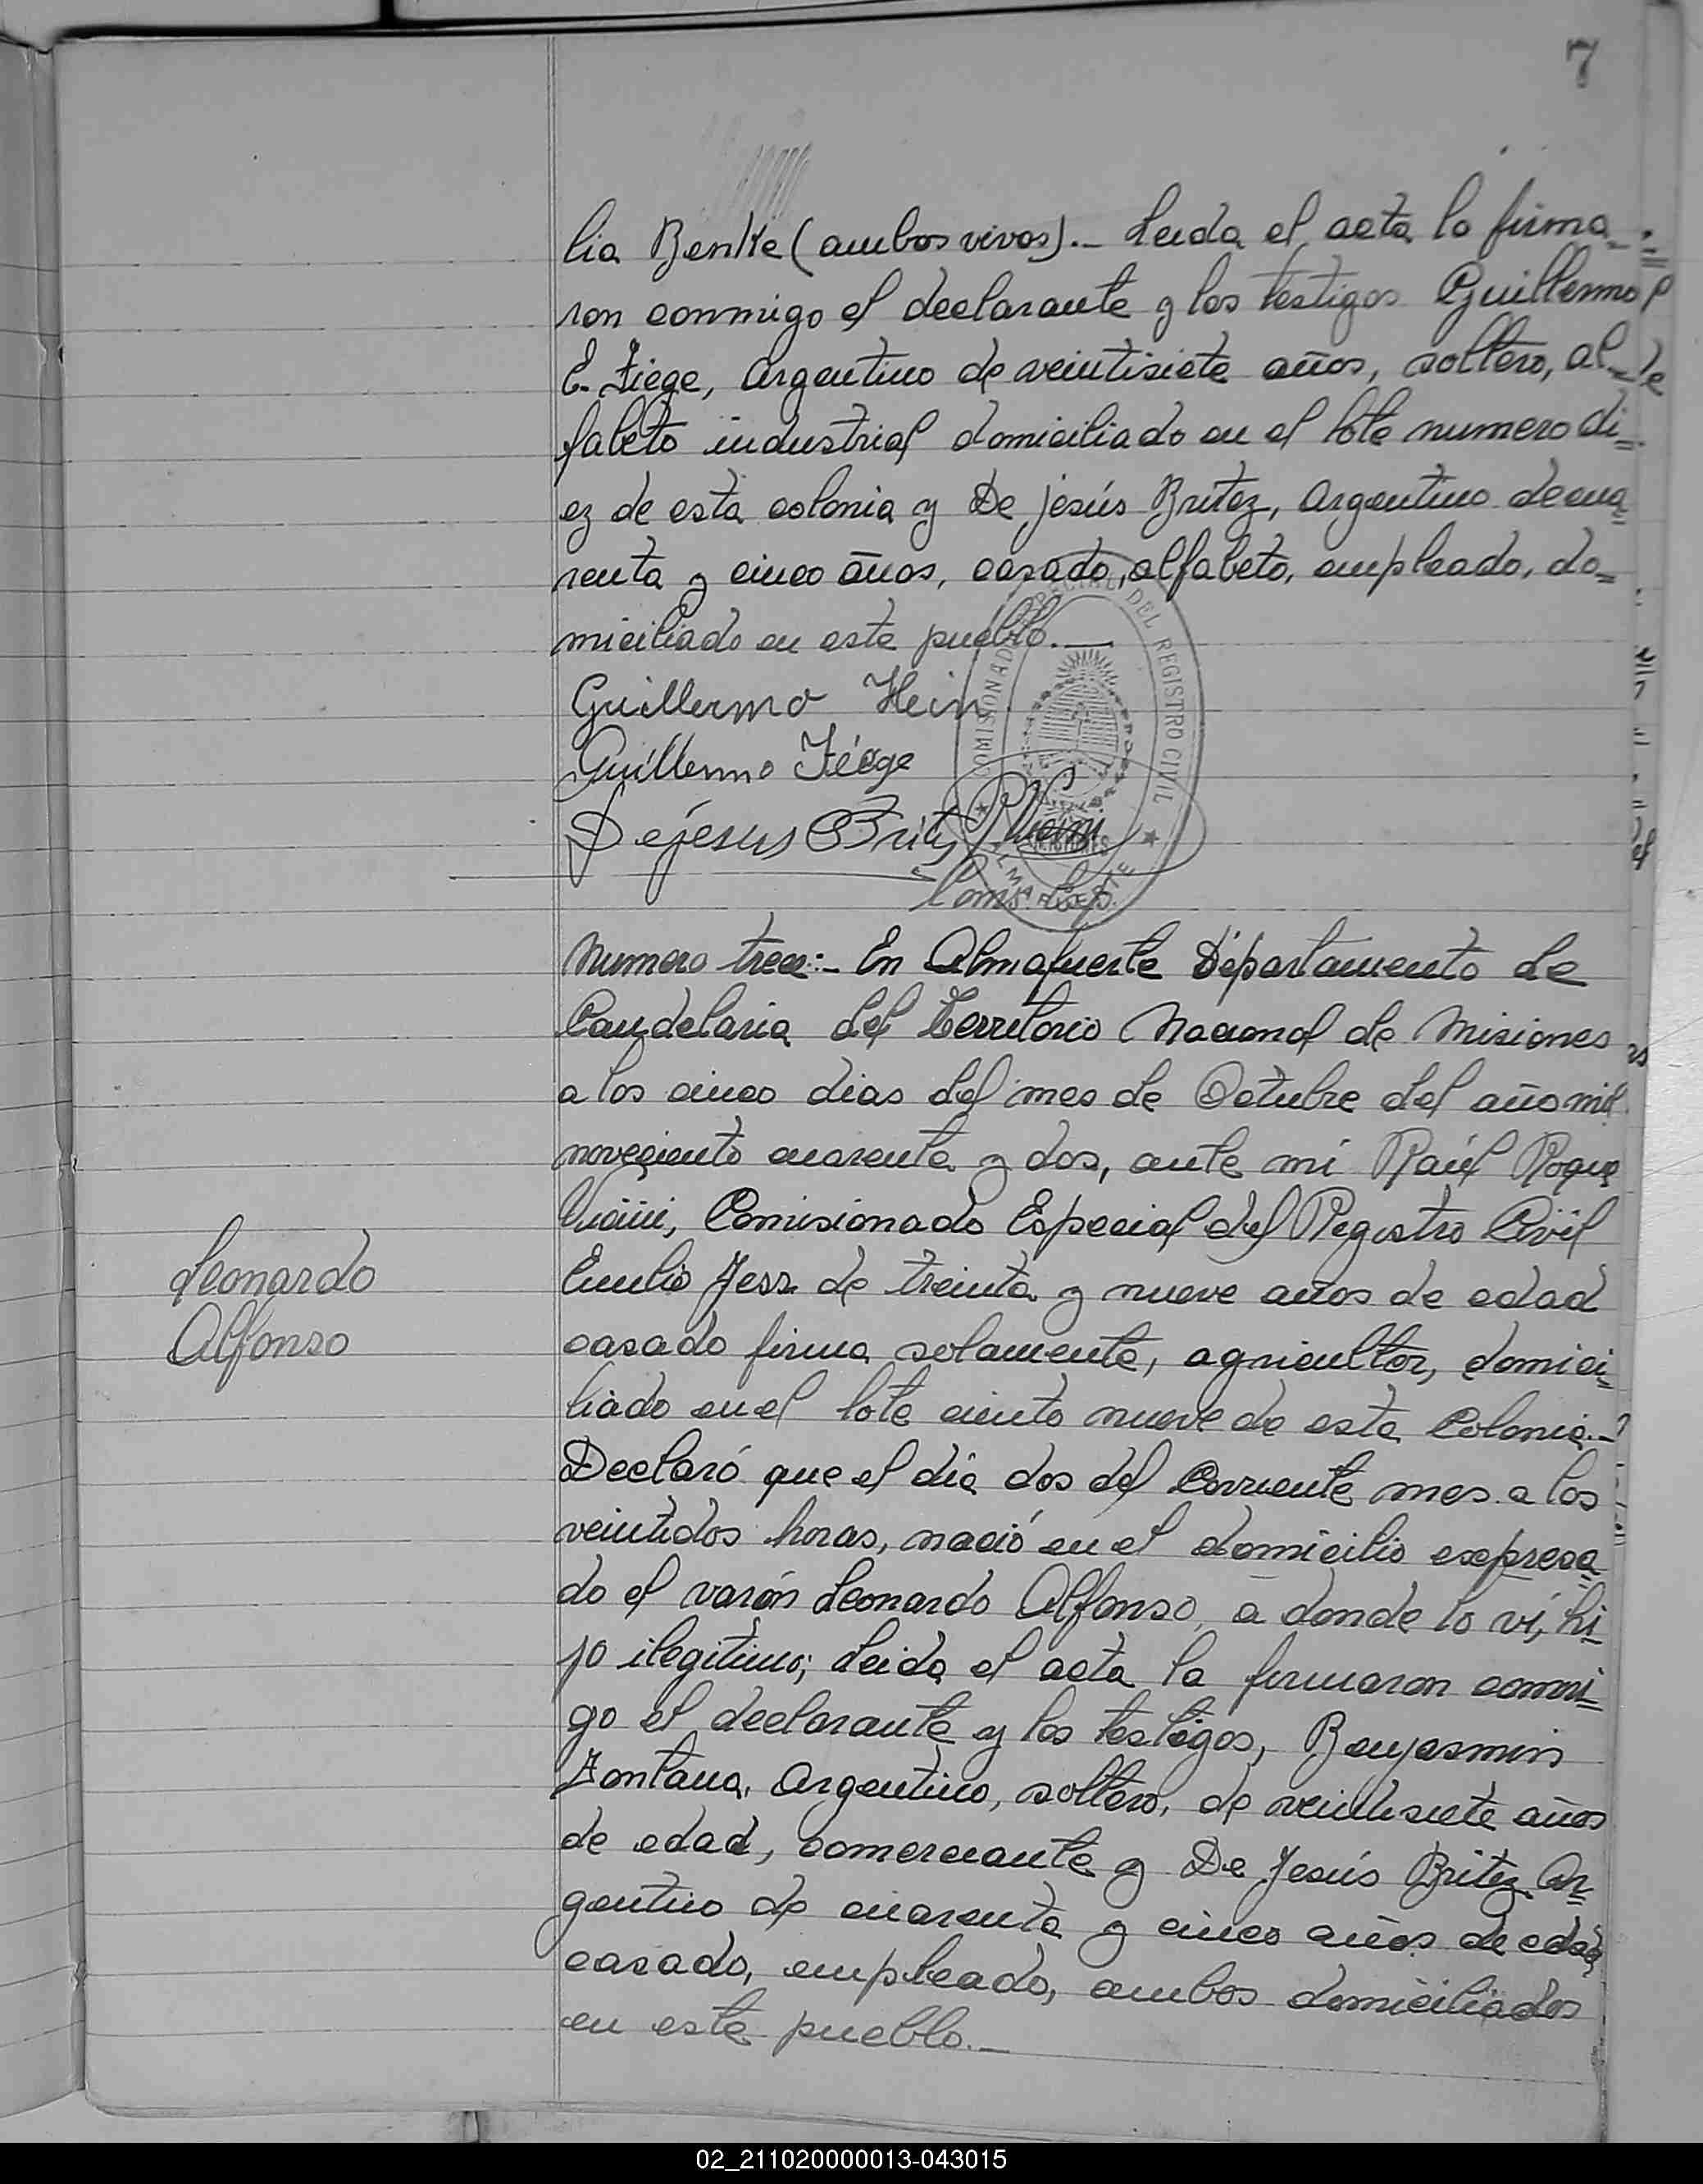 7
lia Benke (ambos vivos).- Leida el acta la firma=
ron conmigo el declarante y los testigos Guillermo
E. Fiege, Argentino de veintisiete años, soltero, al=
fabeto industrial domiciliado en el lote numero di=
ez de esta colonia y De jesús Britez, Argentino de cua=
renta y cinco años, casado, alfabeto, empleado, do=
miciliado en este pueblo.—
Guillermo Hein
Guillermo Fiege
Dejesus Britez
Coms. Esp.
COMISIONADO ESPECIAL DEL REGISTRO CIVIL
MISIONES
ALMAFUERTE
Numero trece:- En Almafuerte Departamento de
Candelaria del Territorio Nacional de Misiones
a los cinco dias del mes de Octubre del año mil
noveciento cuarenta y dos, ante mi Raúl Roque
Comisionado Especial del Registro Civil
Emilio Jess de treinta y nueve años de edad
casado firma solamente, agricultor, domici=
liado en el lote ciento nueve de esta Colonia.-
Declaró que el dia dos del Corriente mes a los
veintidos horas, nació en el domicilio expresa=
do el varón Leonardo Alfonso, a donde lo ví, hi=
jo ilegitimo; Leida el acta la firmaron conmi=
go el declarante y los testigos, Benjasmin
Fontana, Argentino, soltero, de veintisiete años
de edad, comerciante y De Jesús Britez Ar=
gentino de cuarenta y cinco años de edad
casado, empleado, ambos domiciliados
en este pueblo.—
Leonardo
Alfonso
02_211020000013-043015